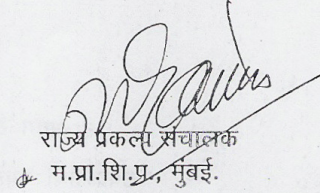 राज्य प्रकल्प संचालक
म.प्रा.शि.प., मुंबई.